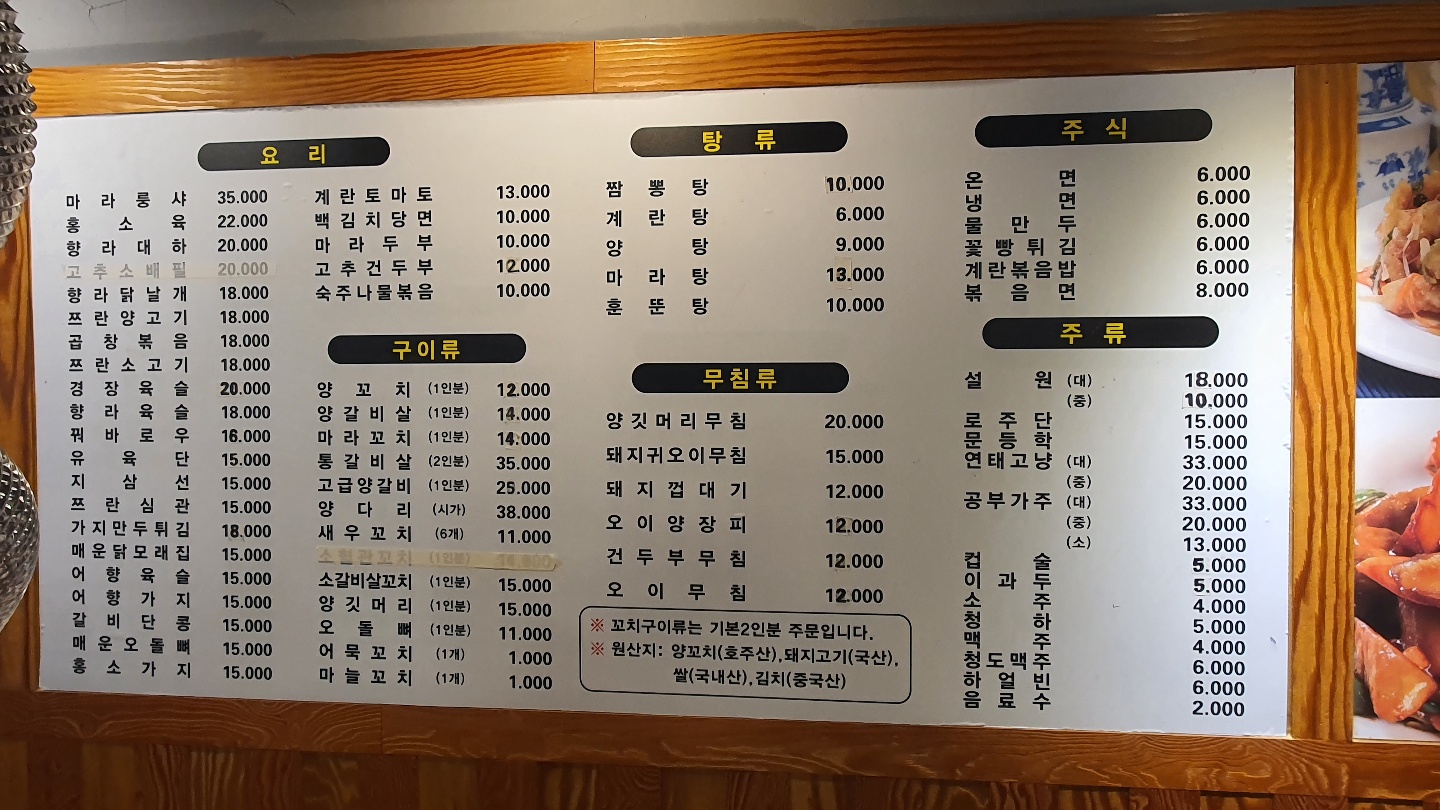 요리
마라룽샤 35.000
홍소육 22.000
향라대하 20.000
고추소배필 20.000
향라닭날개 18.000
쯔란양고기 18.000
곱창볶음 18.000
쯔란소고기 18.000
경장육슬 20.000
향라육슬 18.000
꿔바로우 16.000
유육단 15.000
지삼선 15.000
쯔란심관 15.000
가지만두튀김 18.000
매운닭모래집 15.000
어향육슬 15.000
어향가지 15.000
갈비단콩 15.000
매운오돌뼈 15.000
홍소가지 15.000
계란토마토 13.000
백김치당면 10.000
마라두부 10.000
고추건두부 12.000
숙주나물볶음 10.000
구이류
양꼬치 (1인분) 12.000
양갈비살 (1인분) 14.000
마라꼬치 (1인분) 14.000
통갈비살 (2인분) 35.000
고급양갈비 (1인분) 25.000
양다리 (시가) 38.000
새우꼬치 (6개) 11.000
소혈관꼬치 (1인분)
소갈비살꼬치 (1인분) 15.000
양깃머리 (1인분) 15.000
오돌뼈 (1인분) 11.000
어묵꼬치 (1개) 1.000
마늘꼬치 (1개) 1.000
탕류
짬뽕탕 10.000
계란탕 6.000
양탕 9.000
마라탕 13.000
훈뚠탕 10.000
무침류
양깃머리무침 20.000
돼지귀오이무침 15.000
돼지껍대기 12.000
오이양장피 12.000
건두부무침 12.000
오이무침 12.000
※ 꼬치구이류는 기본2인분 주문입니다.
※ 원산지: 양꼬치(호주산),돼지고기(국산),
쌀(국내산),김치(중국산)
주식
온면 6.000
냉면 6.000
물만두 6.000
꽃빵튀김 6.000
계란볶음밥 6.000
볶음면 8.000
주류
설원 (대) 18.000
(중) 10.000
로주단 15.000
문등학 15.000
연태고냥 (대) 33.000
(중) 20.000
공부가주 (대) 33.000
(중) 20.000
(소) 13.000
컵술 5.000
이과두 5.000
소주 4.000
청하 5.000
맥주 4.000
청도맥주 6.000
하얼빈 6.000
음료수 2.000